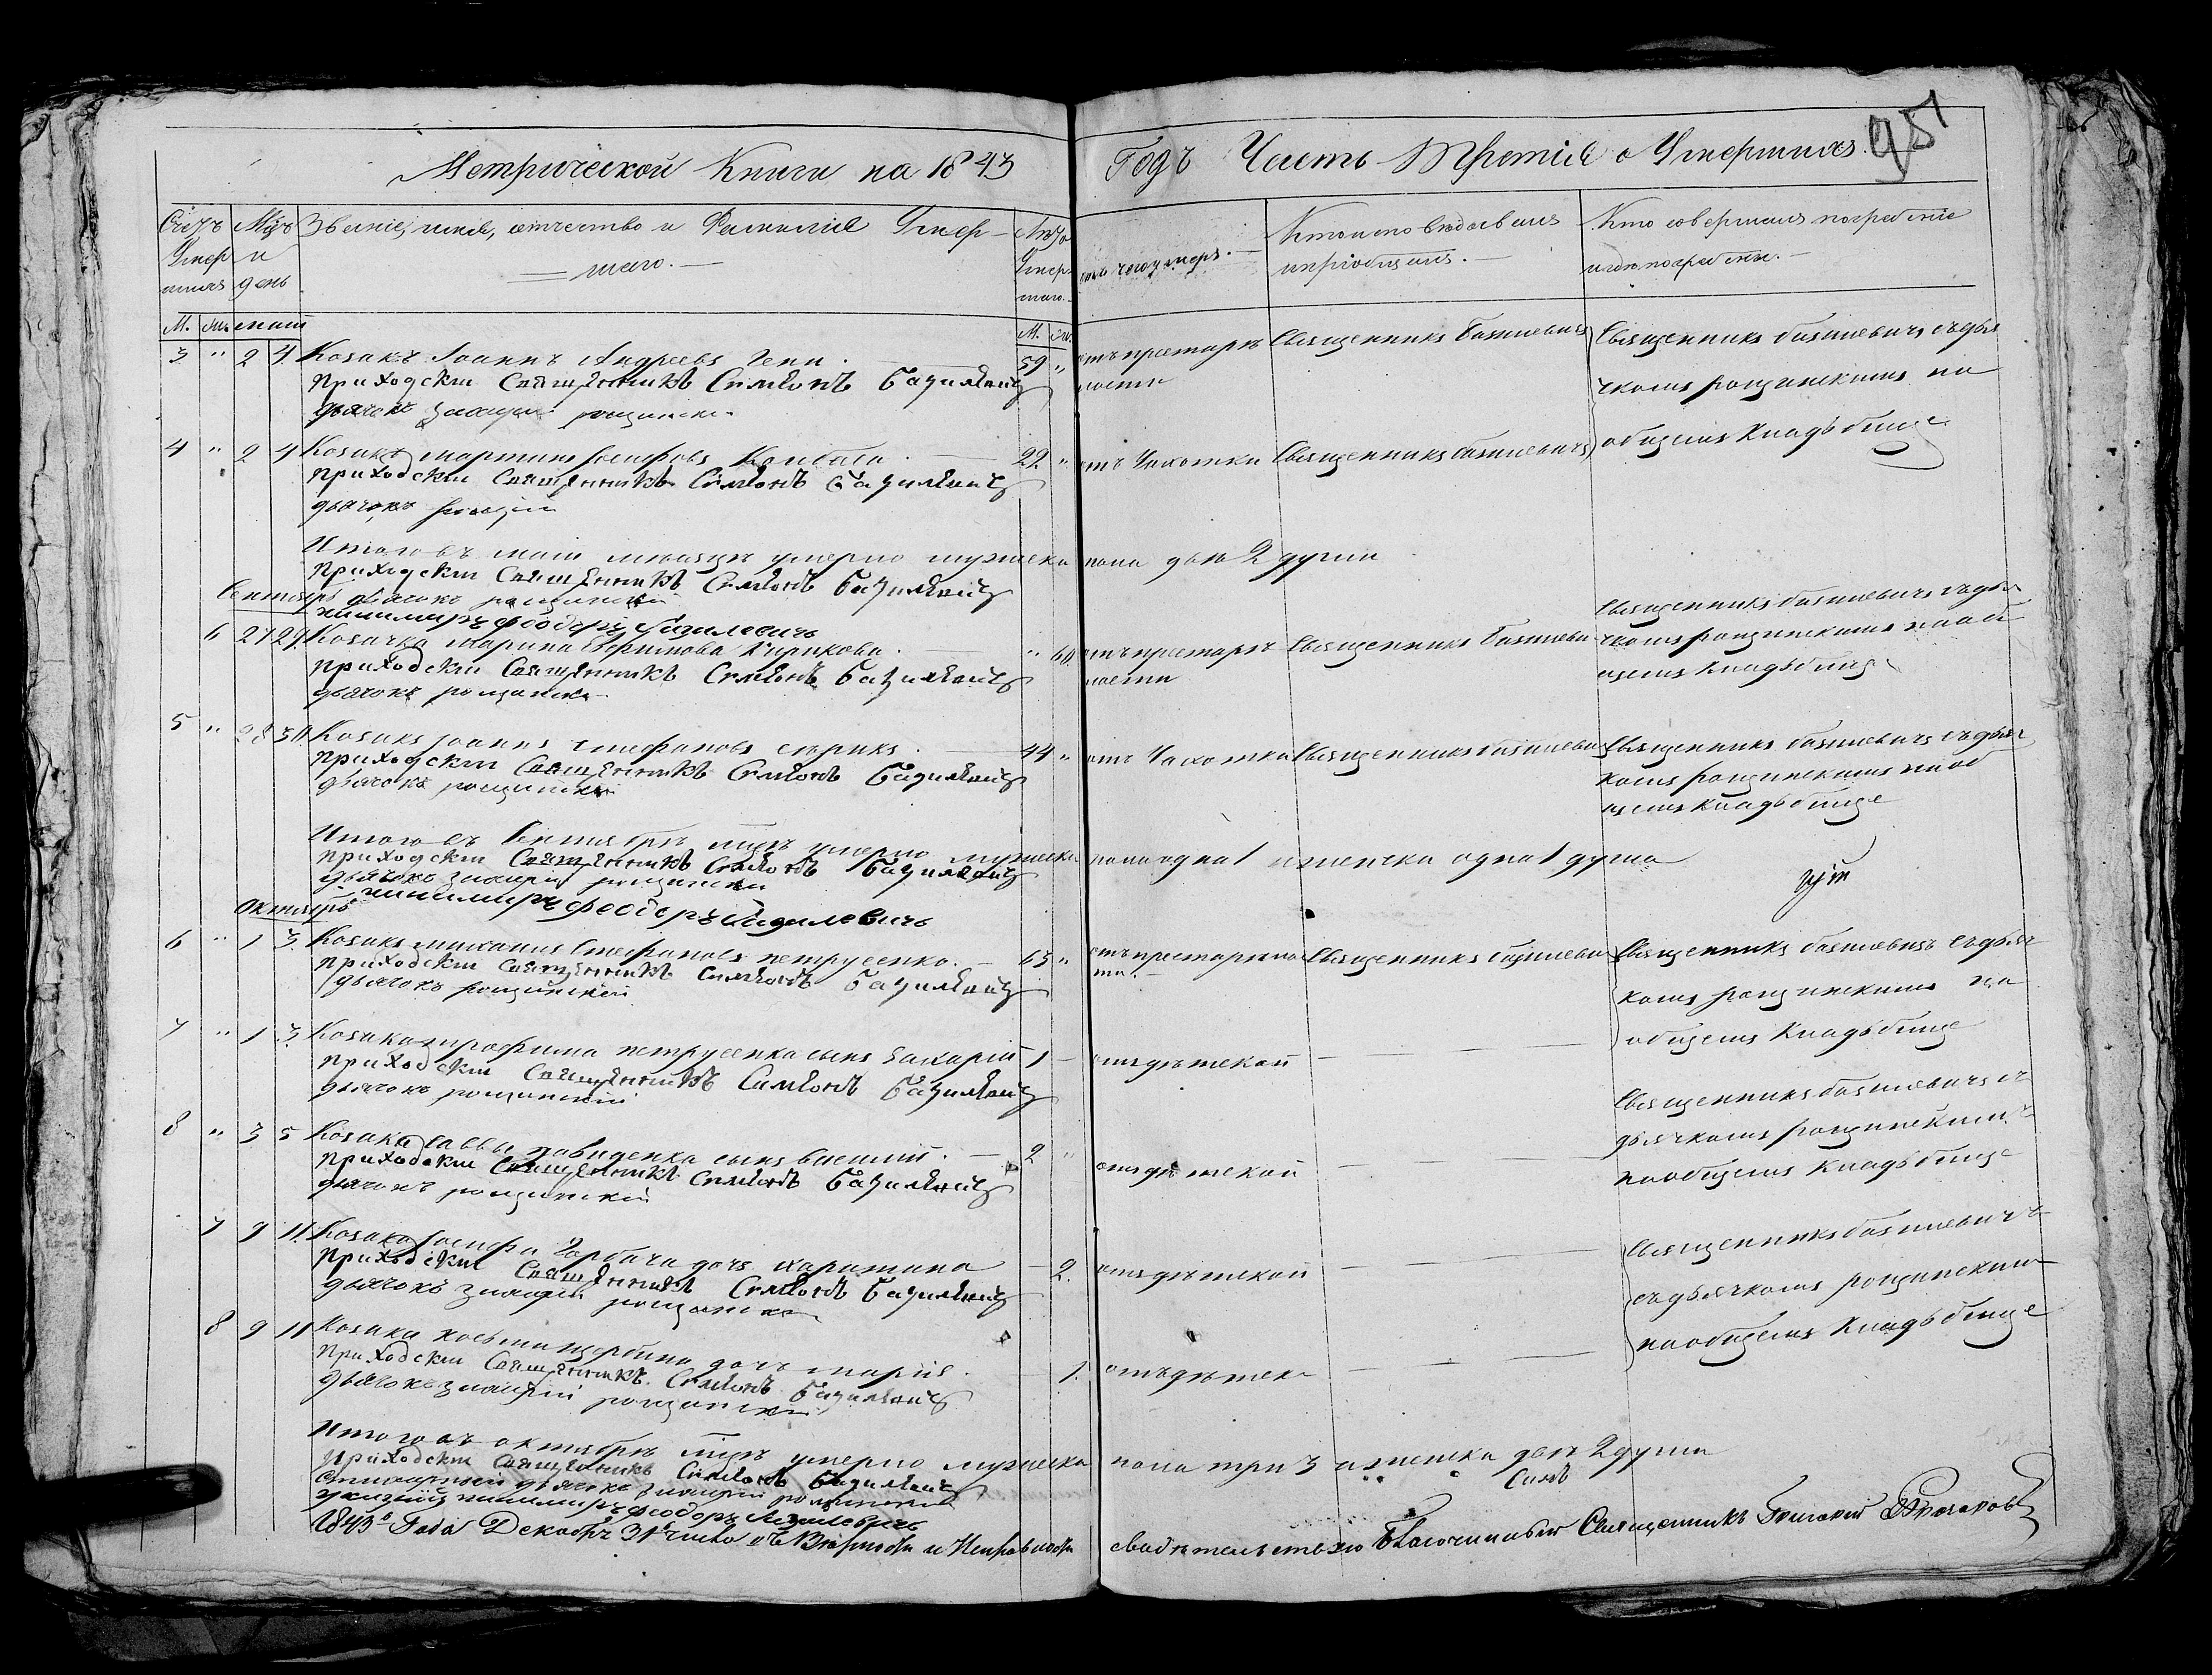 95
Метрической Книги на 1843 Годъ Часть Третія о Умершихъ.
Счетъ Умершихъ М. Ж.
Мѣсяцъ и день
Званіе, имя, отчество и Фамилія Умершаго.
Лѣта Умершаго. М. Ж.
отъ чего умеръ.
Кто исповѣдовалъ и пріобщалъ.
Кто совершалъ погребеніе и гдѣ погребены.
маій
3 " 2 4 Козакъ Іоаннъ Андреевъ 59 " отъ престарѣлости Священникъ Базилевичъ Священникъ Базилевичъ съ дьячкомъ рощинскимъ на общемъ кладбище
Приходскій Священникъ Симеонъ Базилевичъ
дьячокъ рощинскій
4 " 2 4 Козакъ мартинъ Іосифовъ 22 " отъ Чахотки Священникъ Базилевичъ
Приходскій Священникъ Симеонъ Базилевичъ
дьячокъ
Итого въ маіи мѣсяцѣ умерло мужеска пола двѣ 2 души
Приходскій Священникъ Симеонъ Базилевичъ
дьячокъ рощинскій
пономаръ Феодоръ Базилевичъ
Сентябрь
6 27 29 Козачка Марина Кирикова " 60 отъ престарѣлости Священникъ Базилеви Священникъ Базилевичъ съ дьячкомъ рощинскимъ на общемъ кладбище
Приходскій Священникъ Симеонъ Базилевичъ
дьячокъ рощинскій
5 " 28 30 Козакъ Іоаннъ Стефановъ сѣрикъ 44 " отъ Чахотки Священникъ Базилеви Священникъ Базилевичъ съ дьячкомъ рощинскимъ на общемъ кладбище
Приходскій Священникъ Симеонъ Базилевичъ
дьячокъ рощинскій
Итого въ Сентябрѣ мцѣ умерло мужеска пола одна 1 и женска одна 1 душа
Приходскій Священникъ Симеонъ Базилевичъ
дьячокъ рощинскій
пономаръ Феодоръ Базилевичъ
Октябрь
6 " 1 3 Козакъ михаилъ Стефановъ петрусенко. 65 " отъ престарѣлости. Священникъ Базилеви Священникъ Базилевичъ съ дьячкомъ рощинскимъ на общемъ кладбище
Приходскій Священникъ Симеонъ Базилевичъ
дьячокъ рощинскій
7 " 1 3 Козака трофима петрусенка сынъ Захарій 1 отъ дѣтской
Приходскій Священникъ Симеонъ Базилевичъ
дьячокъ рощинскій
8 " 3 5 Козака саввы сынъ Василій. 2 " отъ дѣтской Священникъ Базилевичъ съ дьячкомъ рощинскимъ на общемъ кладбище
Приходскій Священникъ Симеонъ Базилевичъ
дьячокъ рощинскій
7 9 11 Козака Іосифа Горбача дочь харитина 2. отъ дѣтской Священникъ Базилевичъ съ дьячкомъ рощинскимъ на общемъ кладбище
Приходскій Священникъ Симеонъ Базилевичъ
дьячокъ рощинскій
8 9 11 Козака косьми щербини дочь марія. 1. отъ дѣтско
Приходскій Священникъ Симеонъ Базилевичъ
дьячокъ рощинскій
Итого въ октябрѣ мцѣ умерло мужеска пола три 3 и женска двѣ 2 души
Приходскій Священникъ Симеонъ Базилевичъ
дьячокъ рощинскій
пономаръ Феодоръ Базилевичъ
1843 Года Декабрѣ 31 число въ Вѣрности и Исправности свидѣтельствую Благочинный Священникъ Григорій